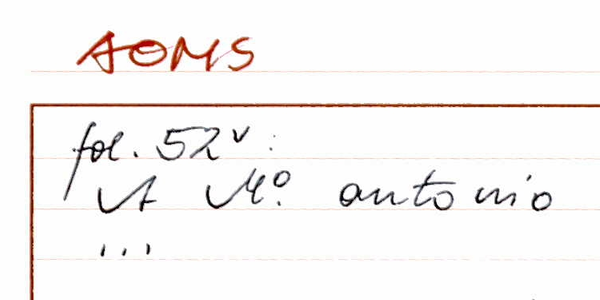 AOMS
fol. 52v:
A Mo. antonio
...